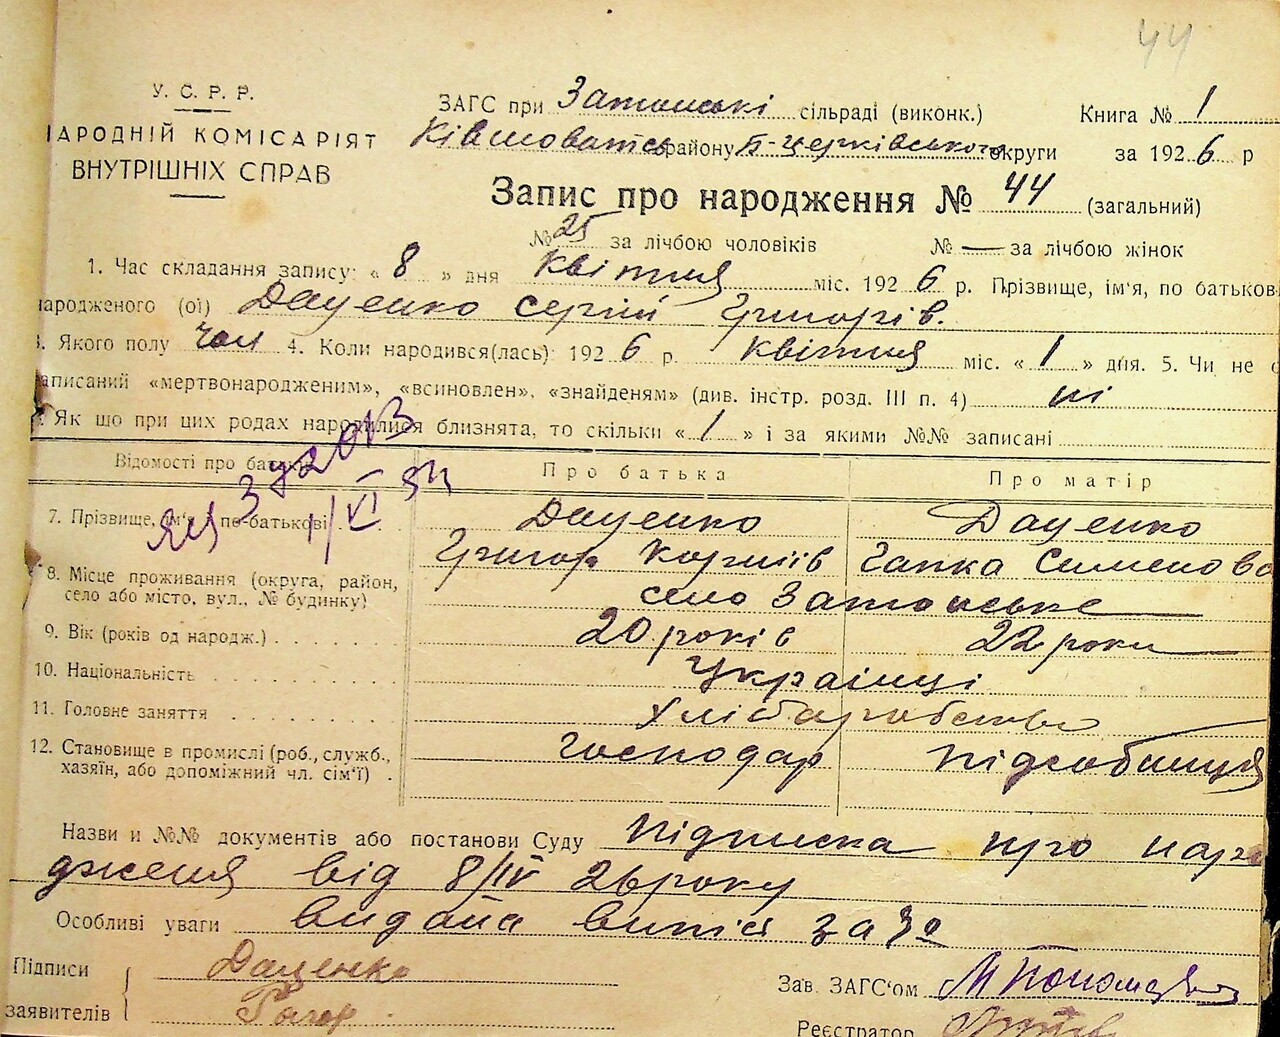 44
У. С. Р. Р.
НАРОДНІЙ КОМІСАРІЯТ
ВНУТРІШНІХ СПРАВ
ЗАГС при Затонські сільраді (виконк.) Книга № 1
району Б-Церківського округи за 1926 р
Запис про народження № 44 (загальний)
№ 25 за лічбою чоловіків № — за лічбою жінок
1. Час складання запису: « 8 » дня Квітня міс. 1926 р. Прізвище, ім'я, по батькові
народженого (ої) Даценко Сергій Григорів.
Якого полу чол 4. Коли народився(лась): 1926 р. Квітня міс. « 1 » дня. 5. Чи не
записаний «мертвонародженим», «всиновлен», «знайденям» (див. інстр. розд. III п. 4) ні
Як що при цих родах народилися близнята, то скільки « 1 » і за якими №№ записані
Відомості про батьків Про батька Про матір
7. Прізвище, ім'я, по-батькові Даценко Даценко
Григор Корніїв Гапка Семенова
8. Місце проживання (округа, район,
село або місто, вул., № будинку) село Затонське
9. Вік (років од народж.) 20 років 22 роки
10. Національність Українці
11. Головне заняття Хліборобство
12. Становище в промислі (роб., служб.,
хазяїн, або допоміжний чл. сім'ї) господар підсобниця
Назви и №№ документів або постанови Суду підписка про наро
дженя від 8/IV 26 року
Особливі уваги видана випис за №
Підписи Даценко Зав. ЗАГС'ом
заявителів Реєстратор